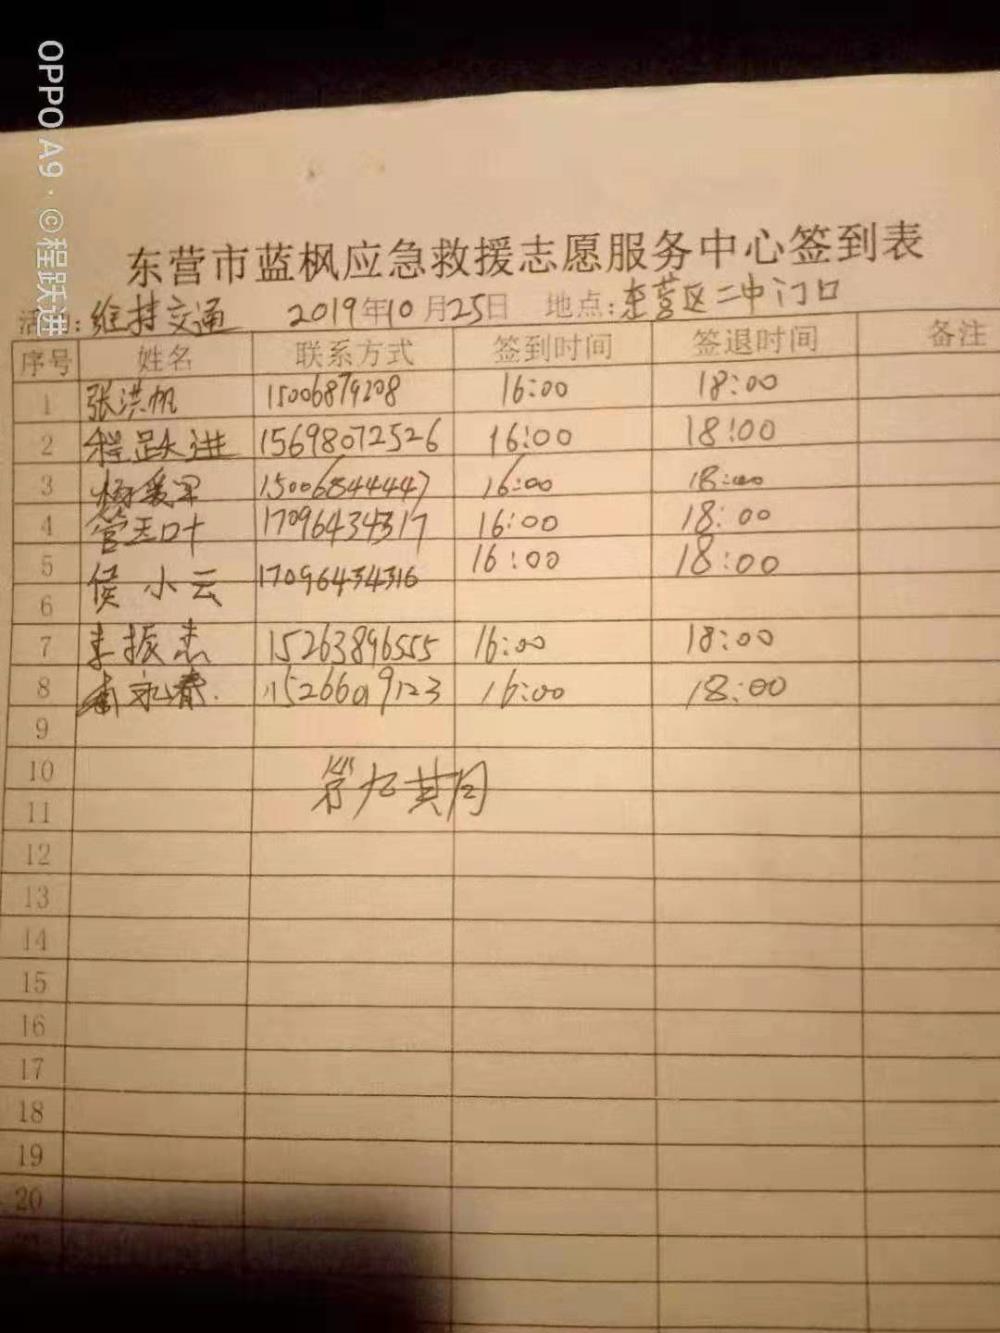 OPPO A9 · ©程跃进
东营市蓝枫应急救援志愿服务中心签到表
活 : 维持交通 2019年10月25日 地点:东营区二中门口
序号 姓名 联系方式 签到时间 签退时间 备注
1 张洪帆 15006879208 16:00 18:00
2 程跃进 15698072526 16:00 18:00
3 15006844447 16:00 18:00
4 管玉叶 17096434317 16:00 18:00
5 侯小云 17096434316 16:00 18:00
6
7 振杰 15263896555 16:00 18:00
8 永春. 15266019123 16:00 18:00
9
10
11
12
13
14
15
16
17
18
19
20